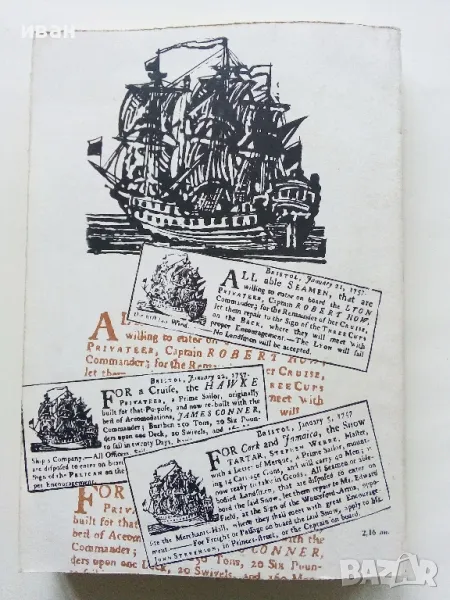 иван
BRISTOL, January 21, 1757.
ALL able SEAMEN, that are
willing to enter on board the LYON
PRIVATEER, Captain ROBERT HOW,
Commander; for the Remainder of her CRUISE,
let them repair to the Sign of the THREE CUPS
on the BACK, where they will meet with
proper Encouragement.—The LYON will sail
Wind.
No Landsmen will be accepted.
AL
willing to enter
PRIVATEER, Captain ROBERT HOW,
Commander; for the Remainder of her CRUISE,
let them EE CUPS
meet with
will
BRISTOL, January 22, 1757.
FOR a Cruise, the HAWKE
PRIVATEER, a Prime Sailor, originally
built for that Purpose, and now re-built with the
best of Accomodations, JAMES CONNER,
Commander; Burthen 250 Tons, 20 Six Poun-
ders upon one Deck, 20 Swivels, and
to sail in twenty Days,
Ship's Company.—All Officers
are disposed to enter on board
Sign of the PELICAN on the
per Encouragement.
Bristol, January 5, 1757
FOR Cork and Jamaica, the Snow
TARTAR, STEPHEN WEBBE, Master,
with a Letter of Marque, a Prime Sailor, mount-
ing 14 Carriage Guns, and will carry 60 Men;
now ready to take in Goods. All Seamen or able-
bodied Landmen, that are disposed to enter on
board the said Snow, let them repair to Mr. Edward
Field, at the Sign of the
site the Merchants-Hall, where they shall meet with great Encourage-
ment.—For Freight or Passage on board the said Snow, apply to Mr.
JOHN STEVENSON, in Princes-street, or the Captain on board.
FOR
PRIVATEER
built for that
best of Accom
Commander; 250 Tons, 20 Six Poun-
ders upon one Deck, 20 Swivels, and 160 Men
CONNER,
2,16 лв.
BAZAR